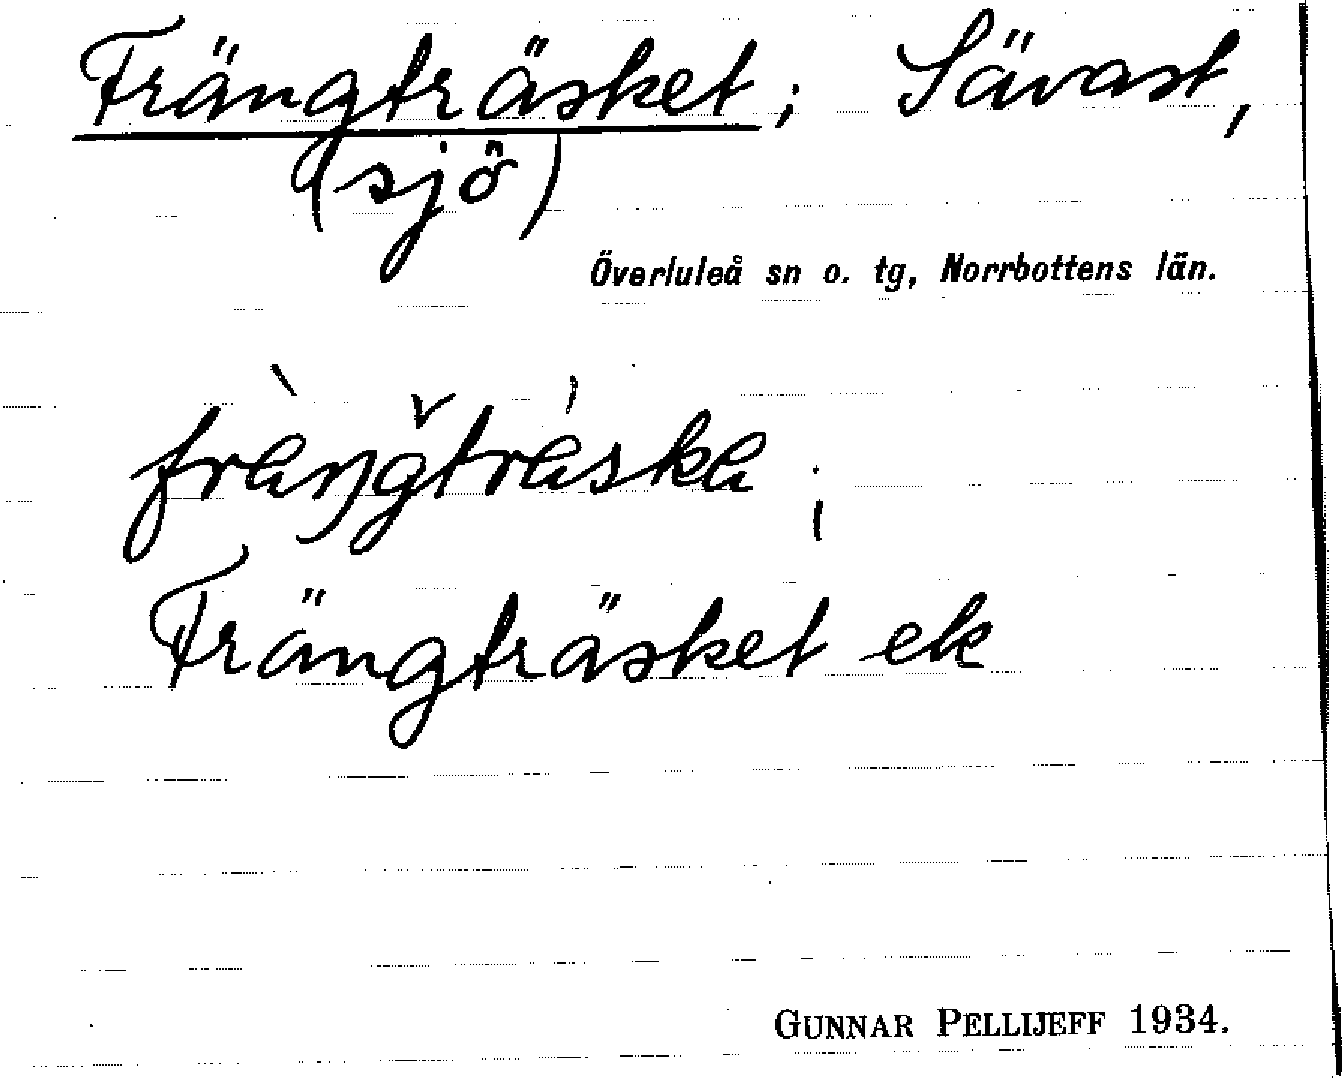 Frängträsket; Sävast,
(sjö)
Överluleå sn o. tg, Norrbottens län.
fràŋǧtráska;
Frängträsket ek
GUNNAR PELLIJEFF 1934.